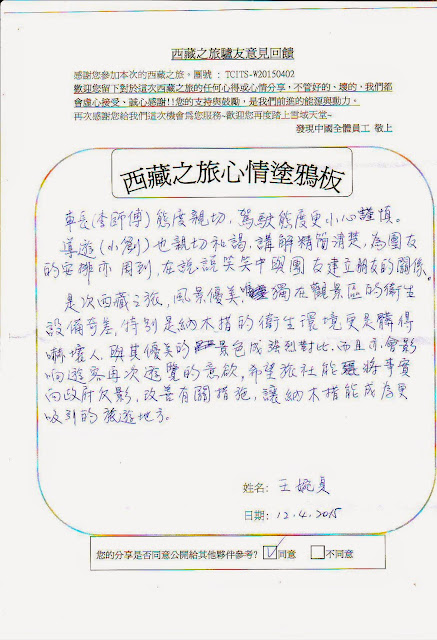 西藏之旅驢友意見回饋
感謝您參加本次的西藏之旅。團號：TCITS-W20150402
歡迎您留下對於這次西藏之旅的任何心得或心情分享，不管好的、壞的，我們都
會虛心接受、誠心感謝!!您的支持與鼓勵，是我們前進的能源與動力。
再次感謝您給我們這次機會為您服務~歡迎您再度踏上雪域天堂~
發現中國全體員工 敬上
西藏之旅心情塗鴉板
車長(李師傅)態度親切，駕駛態度更小心謹慎。
導遊(小劉)也親切和譪，講解精簡清楚，為團友
的安排亦周到，在說說笑笑中與團友建立朋友的關係。
是次西藏之旅，風景優美，獨在觀景區的衛生
設備奇差，特別是納木措的衛生環境更是髒得
嚇壞人，與其優美的景色成強烈對比，而且亦會影
响遊客再次遊覽的意欲，希望旅社能將事實
向政府反影，改善有關措施，讓納木措能成為更
吸引的旅遊地方。
姓名: 王婉貞
日期: 12.4.2015
您的分享是否同意公開給其他夥伴參考? ☑同意 □不同意